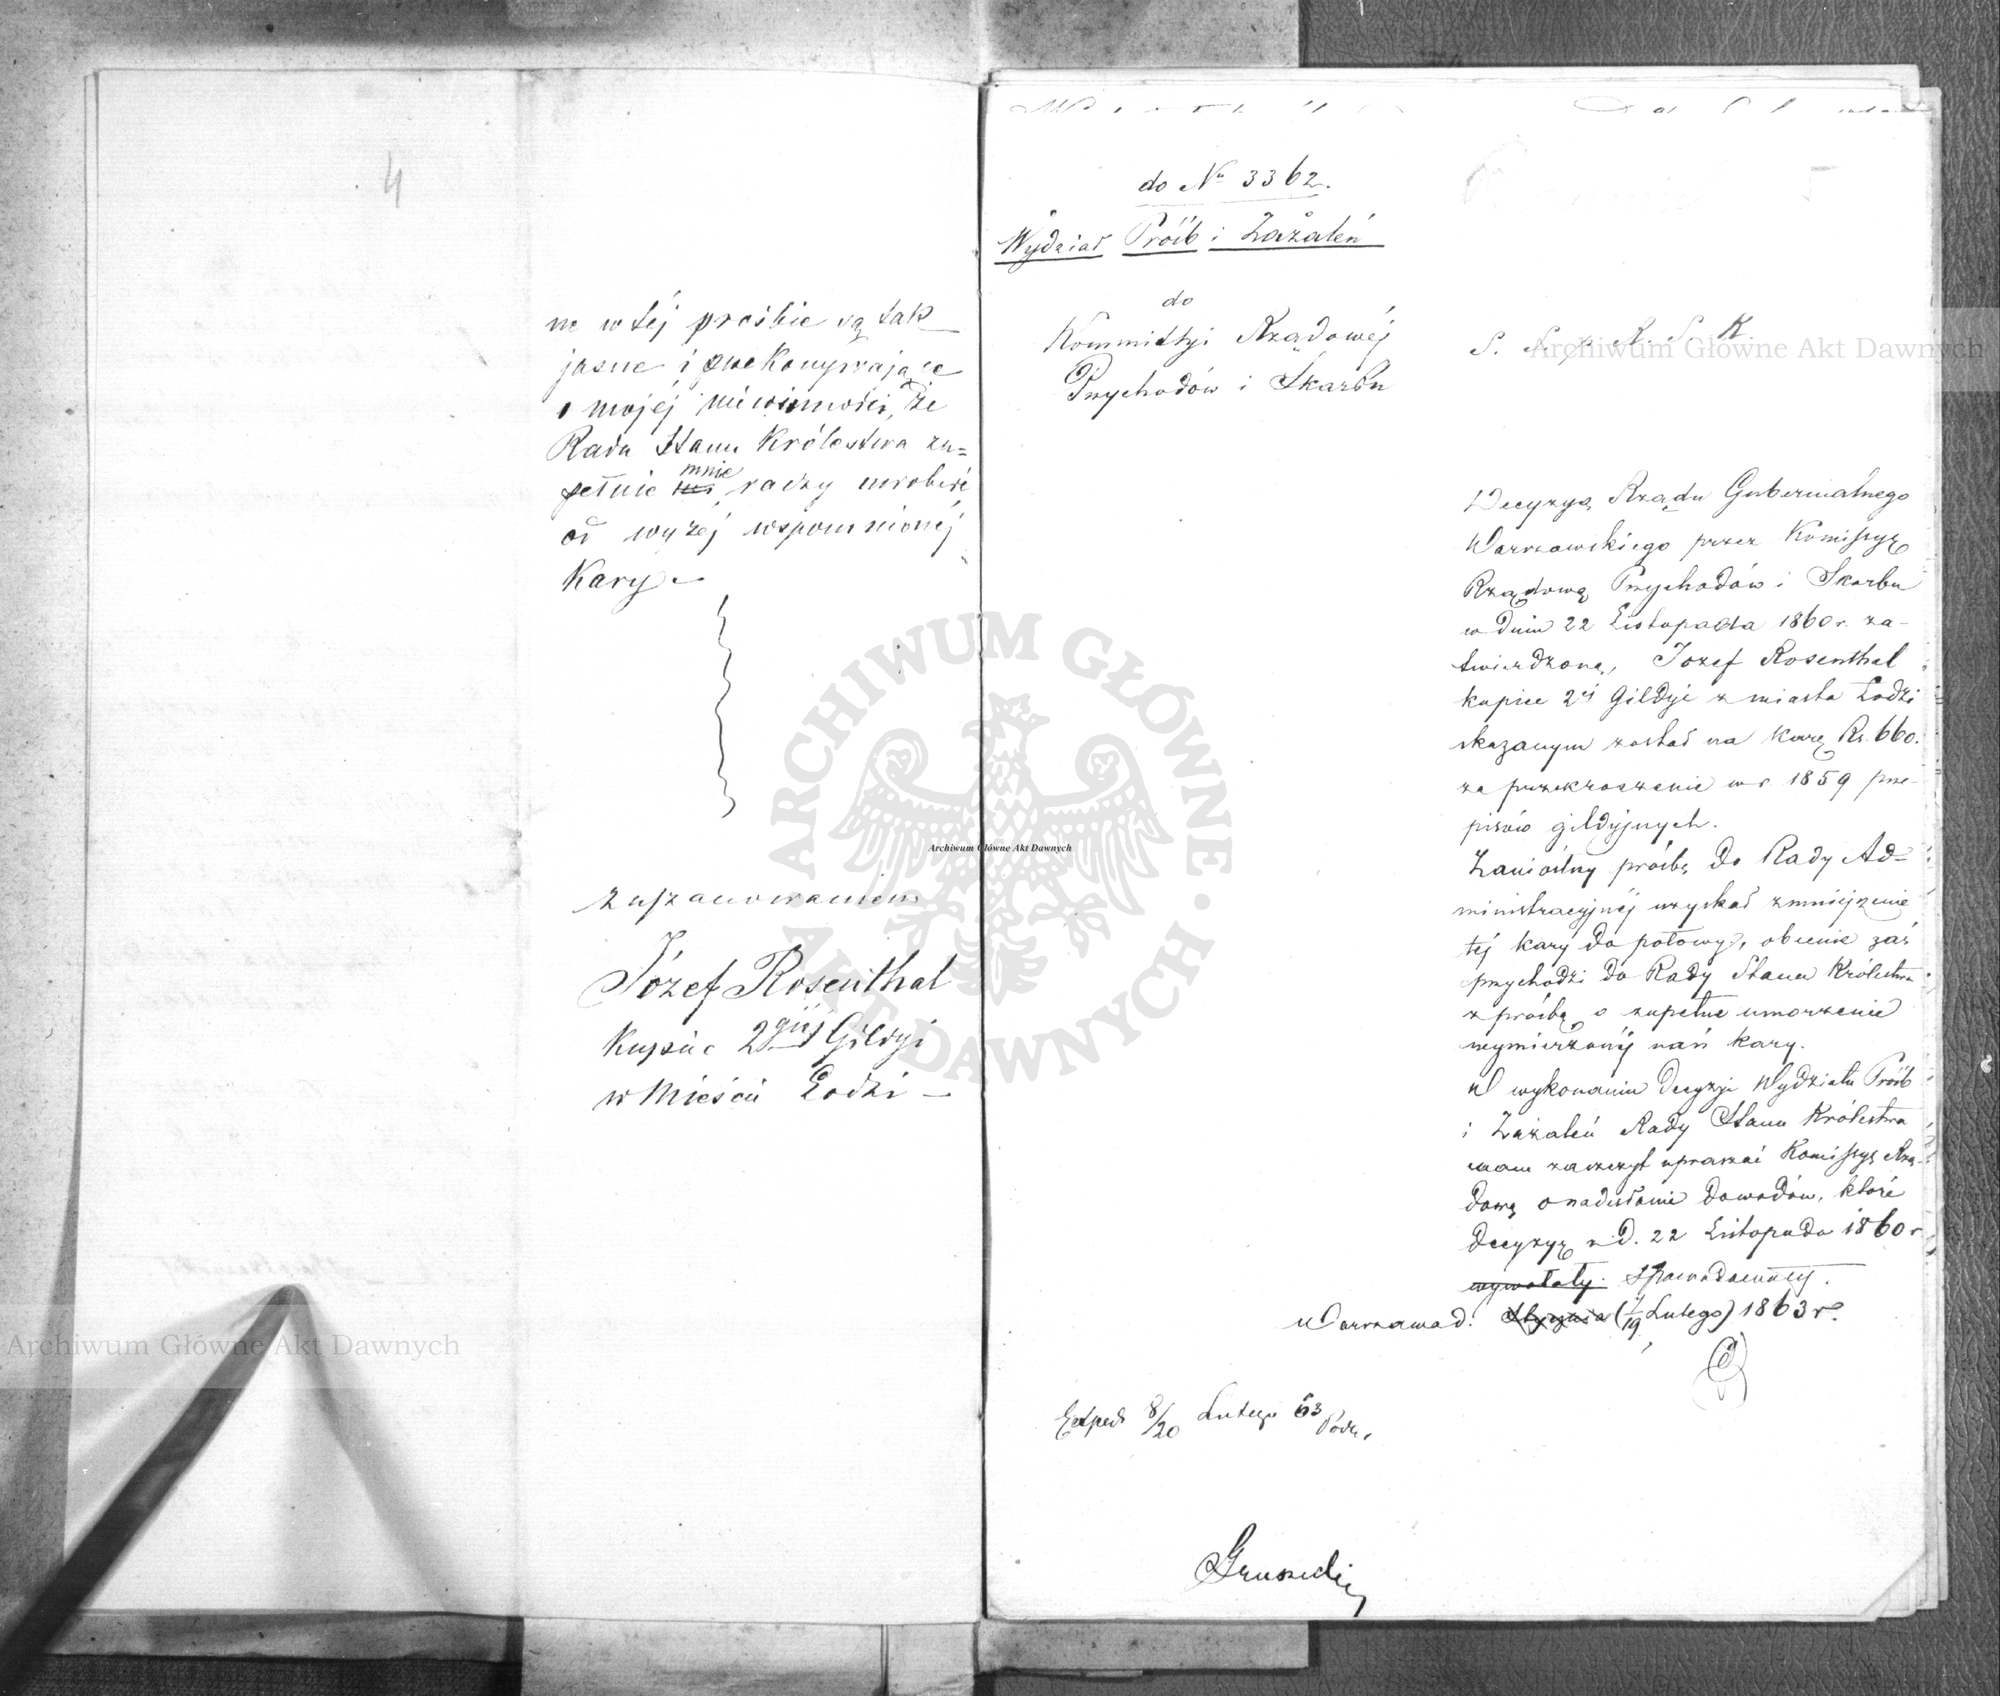 4
ne w tej prośbie są tak
jasne i przekonywające
o mojej niewinności, że
Rada Stanu Królestwa zu=
pełnie mnie raczy uwolnić
od wyżej wspomnionej
Kary
z uszanowaniem
Józef Rosenthal
Kupiec 2giej Gildyi
w Mieście Łodzi —
5
do No 3362.
Wydział Próśb i Zażaleń
do
Kommissyi Rządowej
Przychodów i Skarbu
S. S. p. R. S. K.
Decyzyą Rządu Gubernialnego
Warszawskiego przez Komissyę
Rządową Przychodów i Skarbu
w dniu 22 Listopada 1860 r. za-
twierdzoną, Jozef Rosenthal
kupiec 2ej Gildyi z miasta Łodzi
skazanym został na karę Rs. 660.
za przekroszenie w r. 1859 prze-
pisów gildyjnych.
Zaniósłszy prośbę do Rady Ad=
ministracyjnej uzyskał zmniejszenie
tej kary do połowy, obecnie zaś
przychodzi do Rady Stanu Królestwa
z prośbą o zupełne umorzenie
wymierzonej nań kary.
W wykonaniu decyzyi Wydziału Próśb
i Zażaleń Rady Stanu Królestwa
mam zaszczyt upraszać Komissyę Rzą-
dową o nadesłanie dowodów, które
decyzyę z d. 22 Listopada 1860 r
wywołały. spowodowały.
Warszawa d. Stycznia (7/19 Lutego) 1863 r.
Exped 8/20 Lutego 63
Archiwum Główne Akt Dawnych
Archiwum Główne Akt Dawnych
Archiwum Główne Akt Dawnych
ARCHIWUM GŁÓWNE · AKT DAWNYCH ·